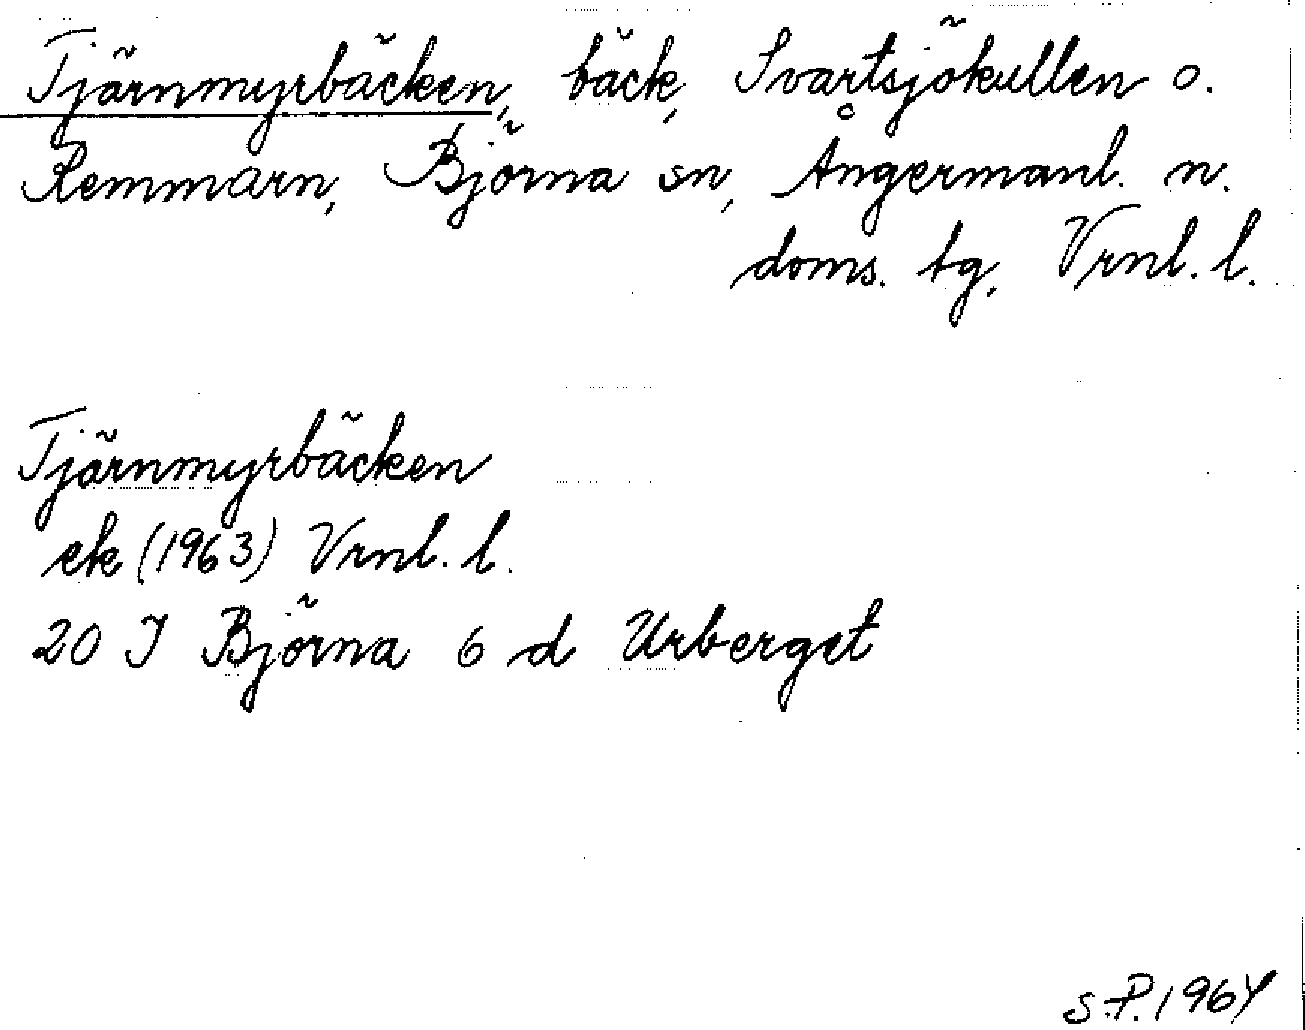 Tjärnmyrbäcken, bäck, Svartsjökullen o.
Remmarn, Björna sn, Ångermanl. n.
doms. tg, Vrnl. l.
Tjärnmyrbäcken
ek (1963) Vrnl. l.
20 I Björna 6 d Urberget
S.P. 1964